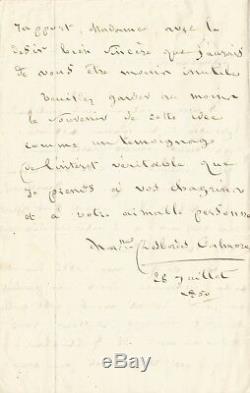 rapport, Madame avec le
désir bien sincère que j'aurais
de vous être moins inutile.
Veuillez garder au moins
le souvenir de cette idée
comme un témoignage
de l'intérêt véritable que
je prends à vos chagrins
et à votre aimable personne
Desbordes Valmore
28 Juillet
1850
ebay